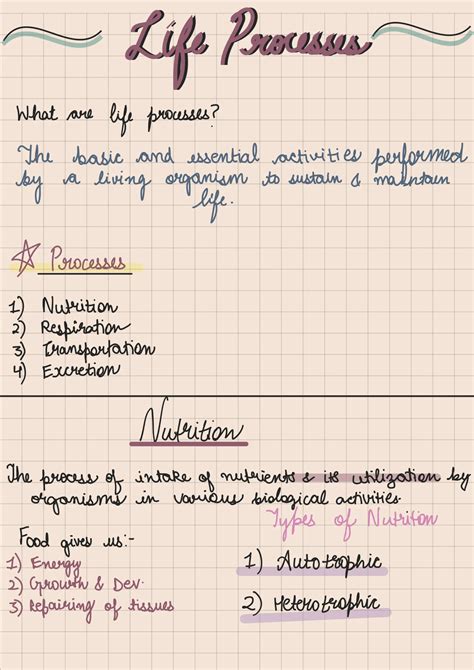 Life Processes
What are life processes?
The basic and essential activities performed
by a living organism to sustain & maintain
life.
Processes
1) Nutrition
2) Respiration
3) Transportation
4) Excretion
Nutrition
The process of intake of nutrients & its utilization by
organisms in various biological activities.
Types of Nutrition
Food gives us:-
1) Energy
2) Growth & Dev.
3) Repairing of tissues
1) Autotrophic
2) Heterotrophic